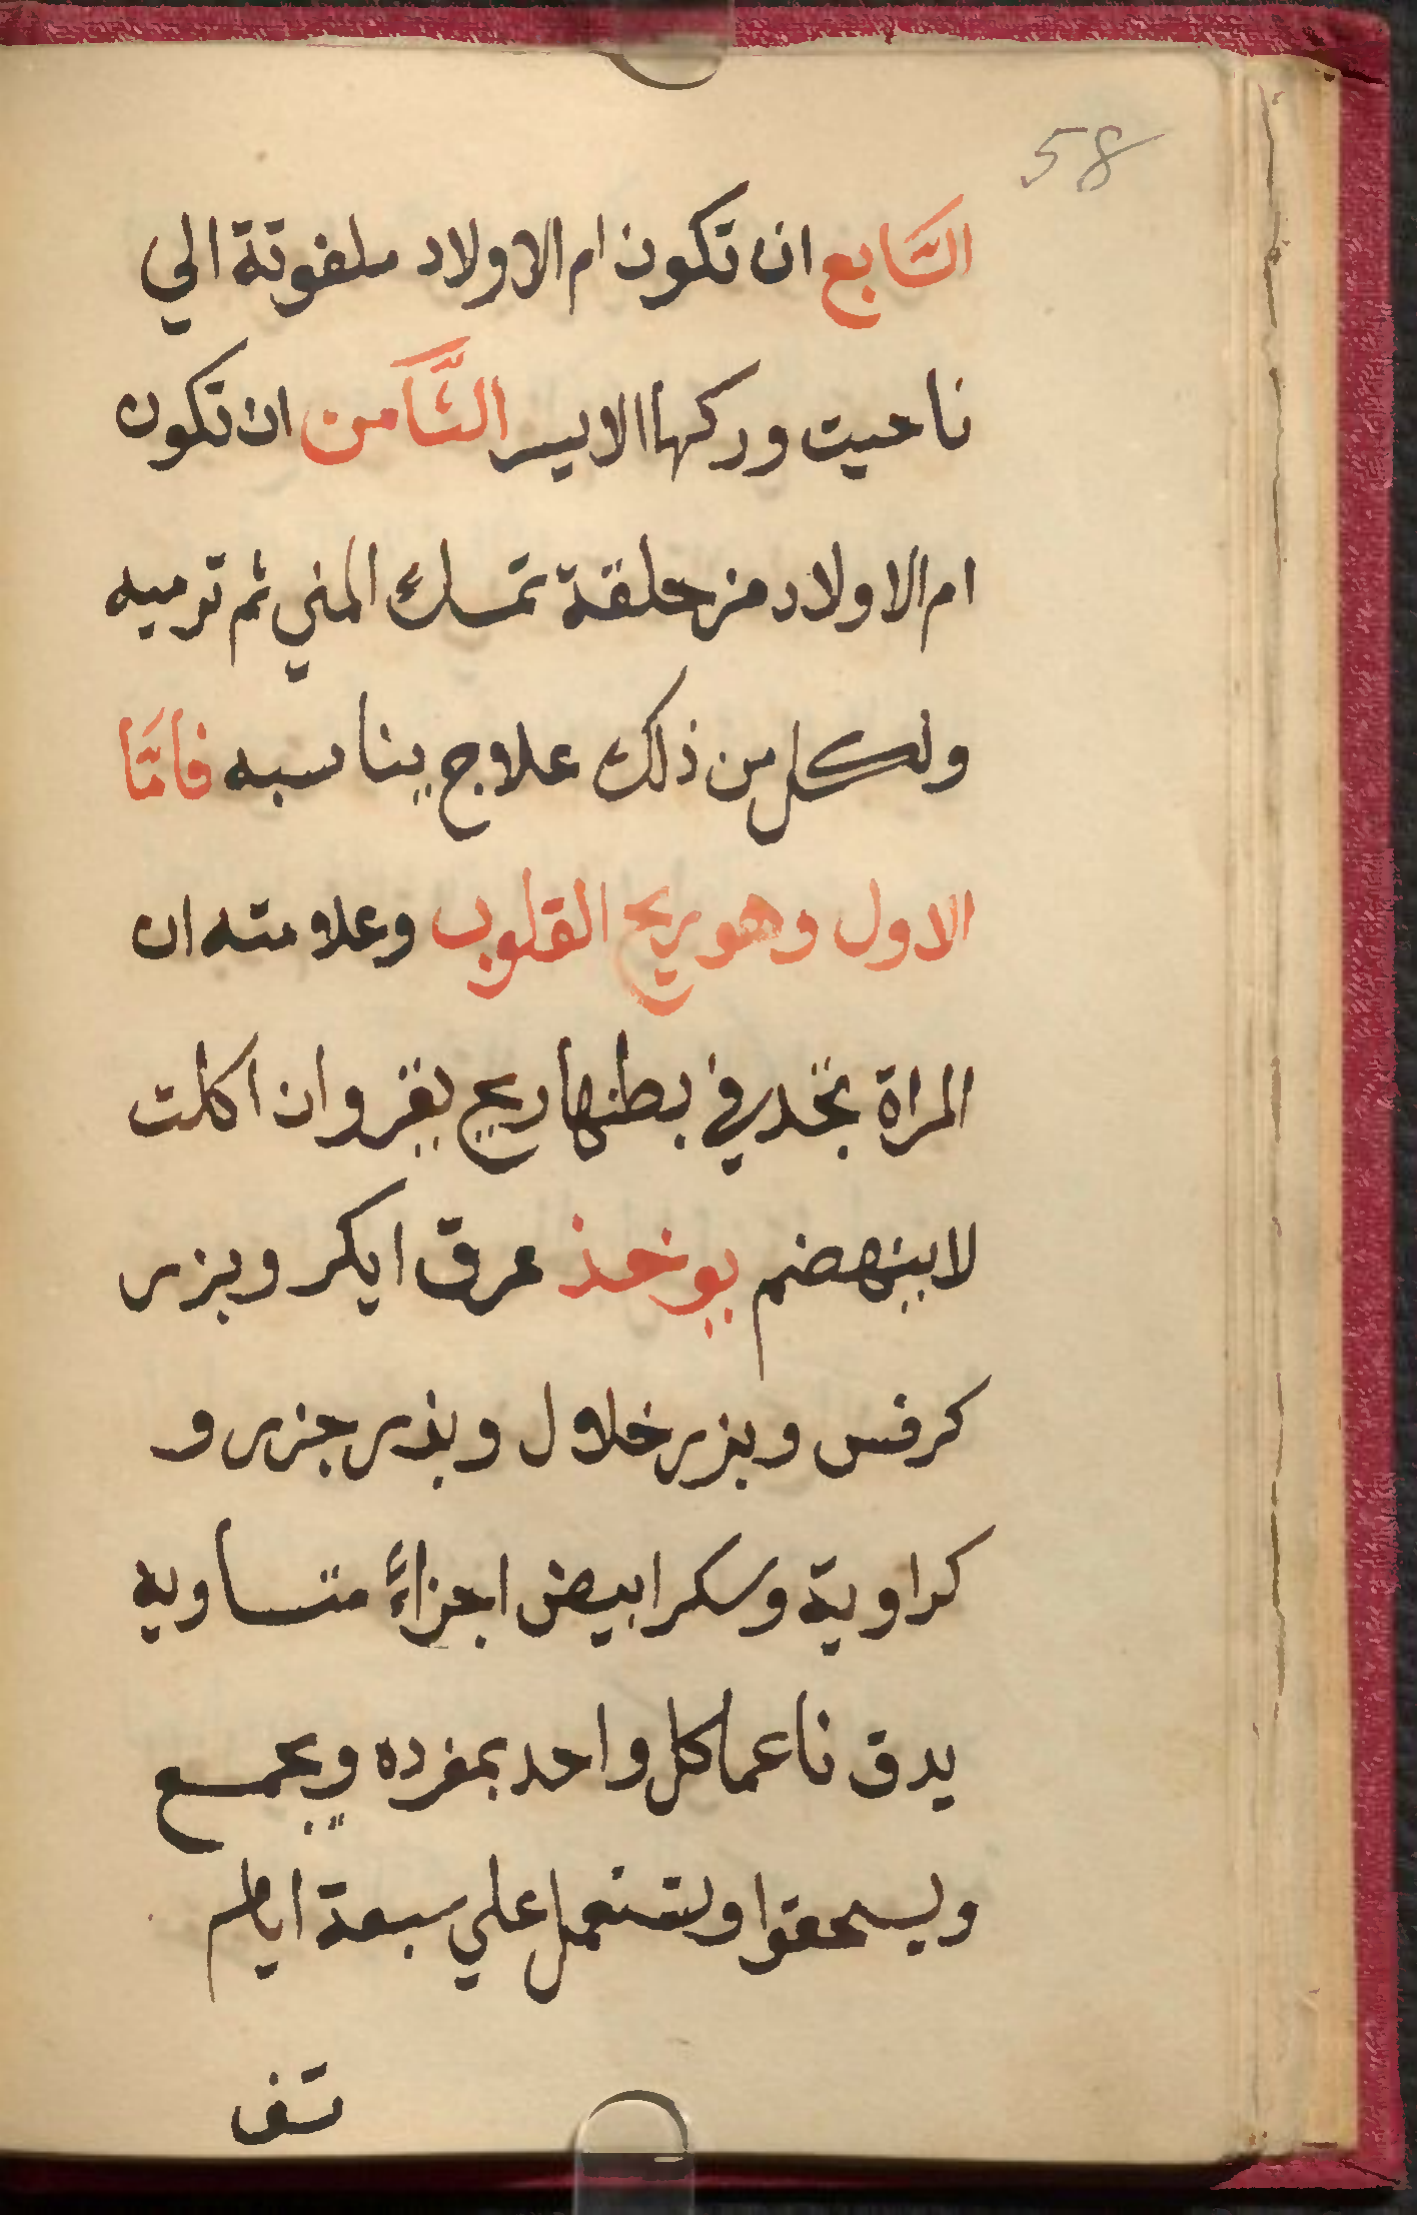 58
السَّابع ان تكون ام الاولاد ملفوتة الي
ناحيت وركها الايسر الثَّامن ان تكون
ام الاولاد من حلقة تمسك المني ثم ترميه
ولكل من ذلك علاج يناسبه فامَّا
الاول وهو ريح القلوب وعلامته ان
المراة تجد في بطنها ريح يغز وان اكلت
لا ينهضم يوخذ عرق ايكر وبزر
كرفس وبزر خلال وبذر جزر و
كراوية وسكر ابيض اجزاءً متساوية
يدق ناعما كل واحد بمفرده ويجمع
ويسحقوا ويستعمل علي سبعة ايام
تف